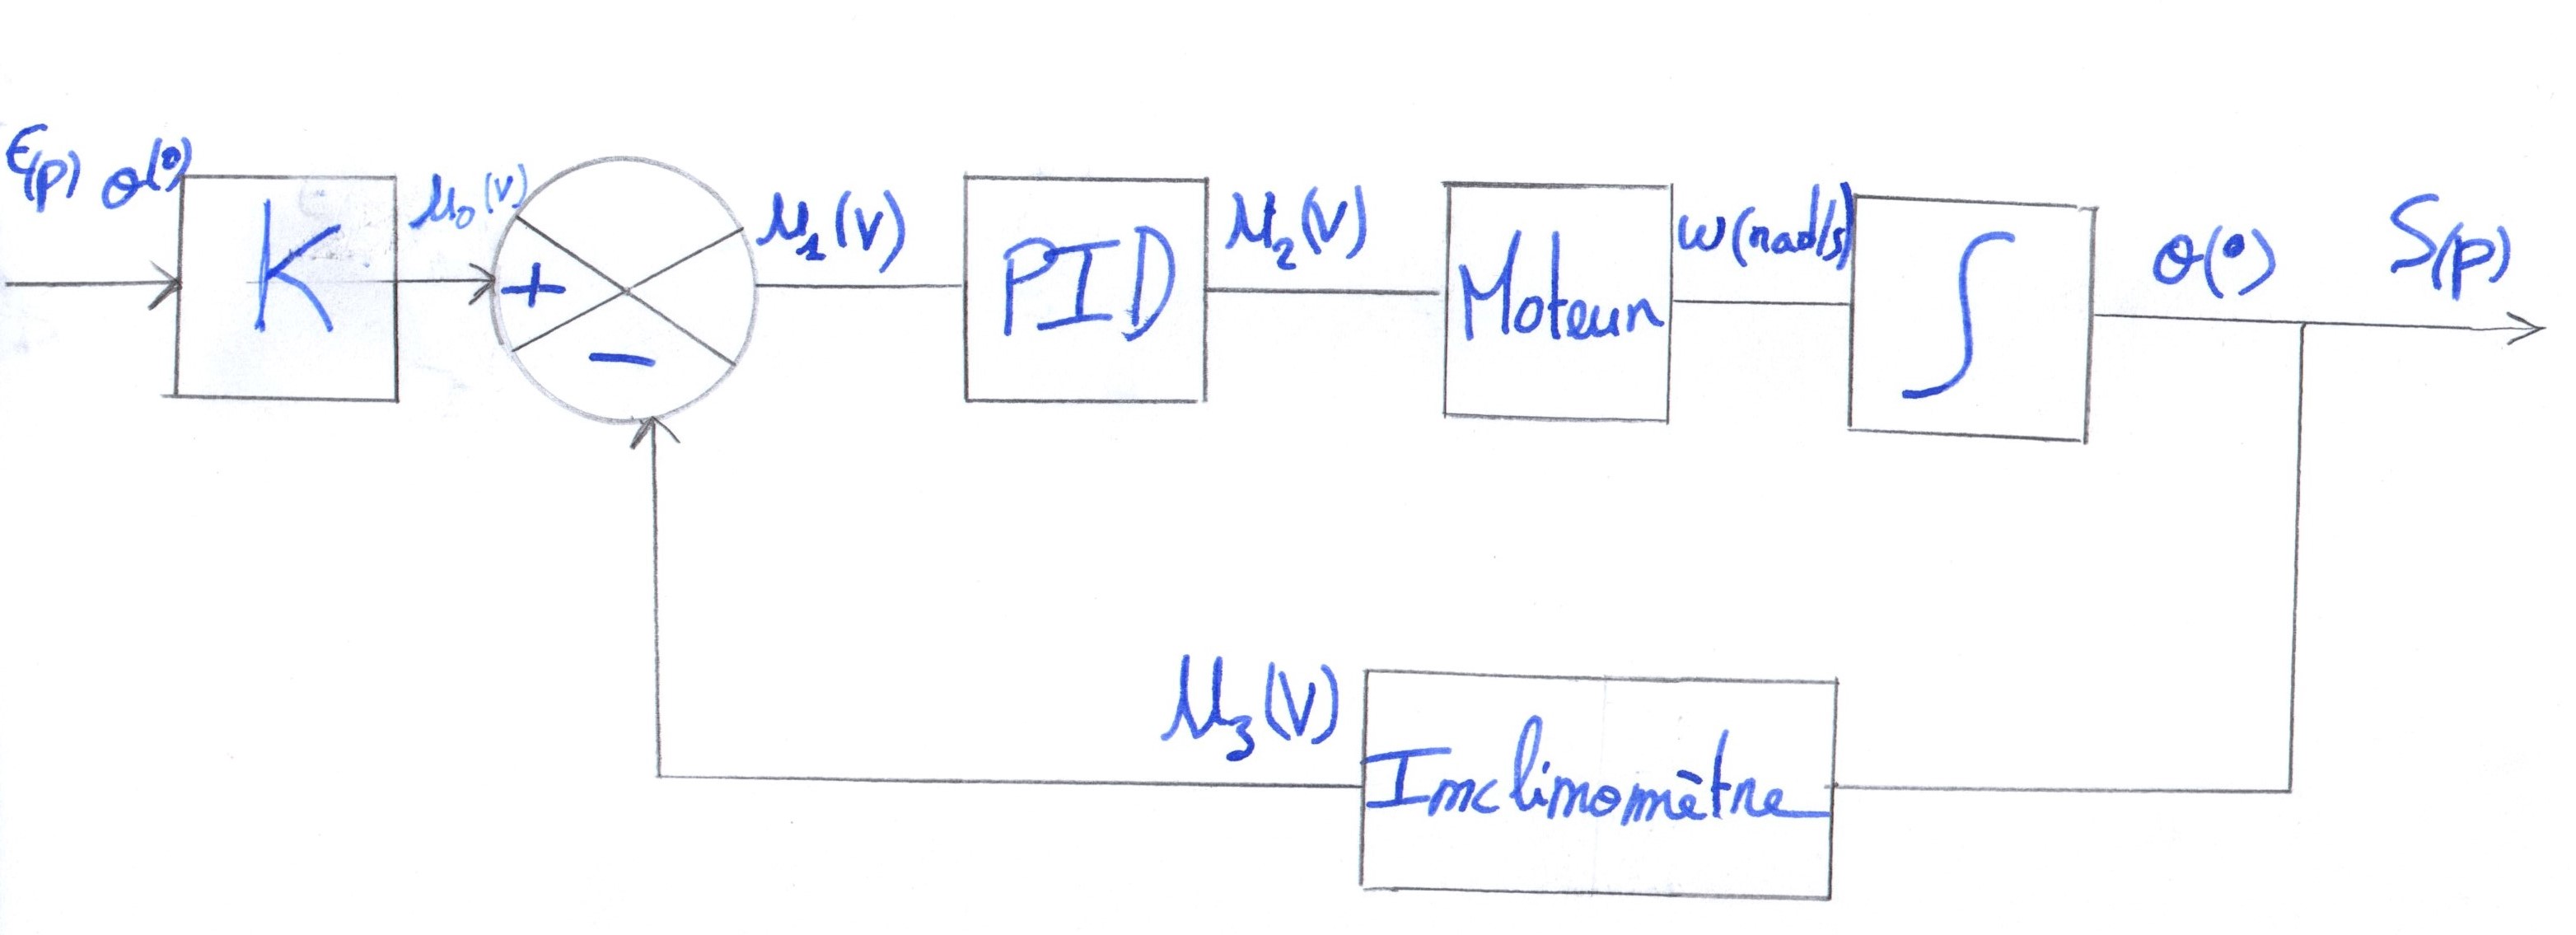 E(p) θ(°)
K
μ₀(V)
+
−
μ₁(V)
PID
μ₂(V)
Moteur
ω(rad/s)
∫
θ(°)
S(p)
μ₃(V)
Inclinomètre